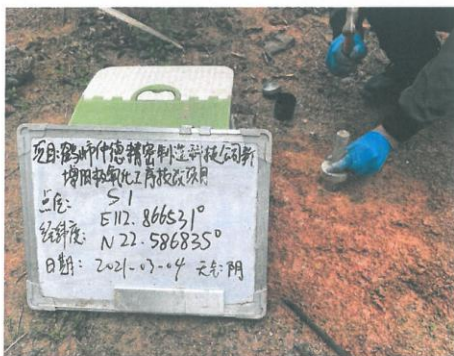 项目:鹤山市仲德精密制造科技公司新
增阳极氧化工序技改项目
点位: S1
E112.866531°
经纬度:
N 22.586835°
日期: 2021-03-04 天气:阴